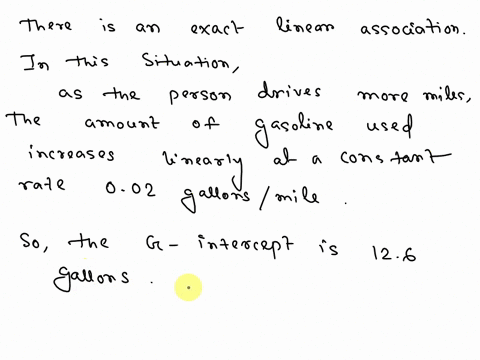 There is an exact linear association.
In this situation,
as the person drives more miles,
the amount of gasoline used
increases linearly at a constant
rate 0.02 gallons/mile.
So, the G-intercept is 12.6
gallons.